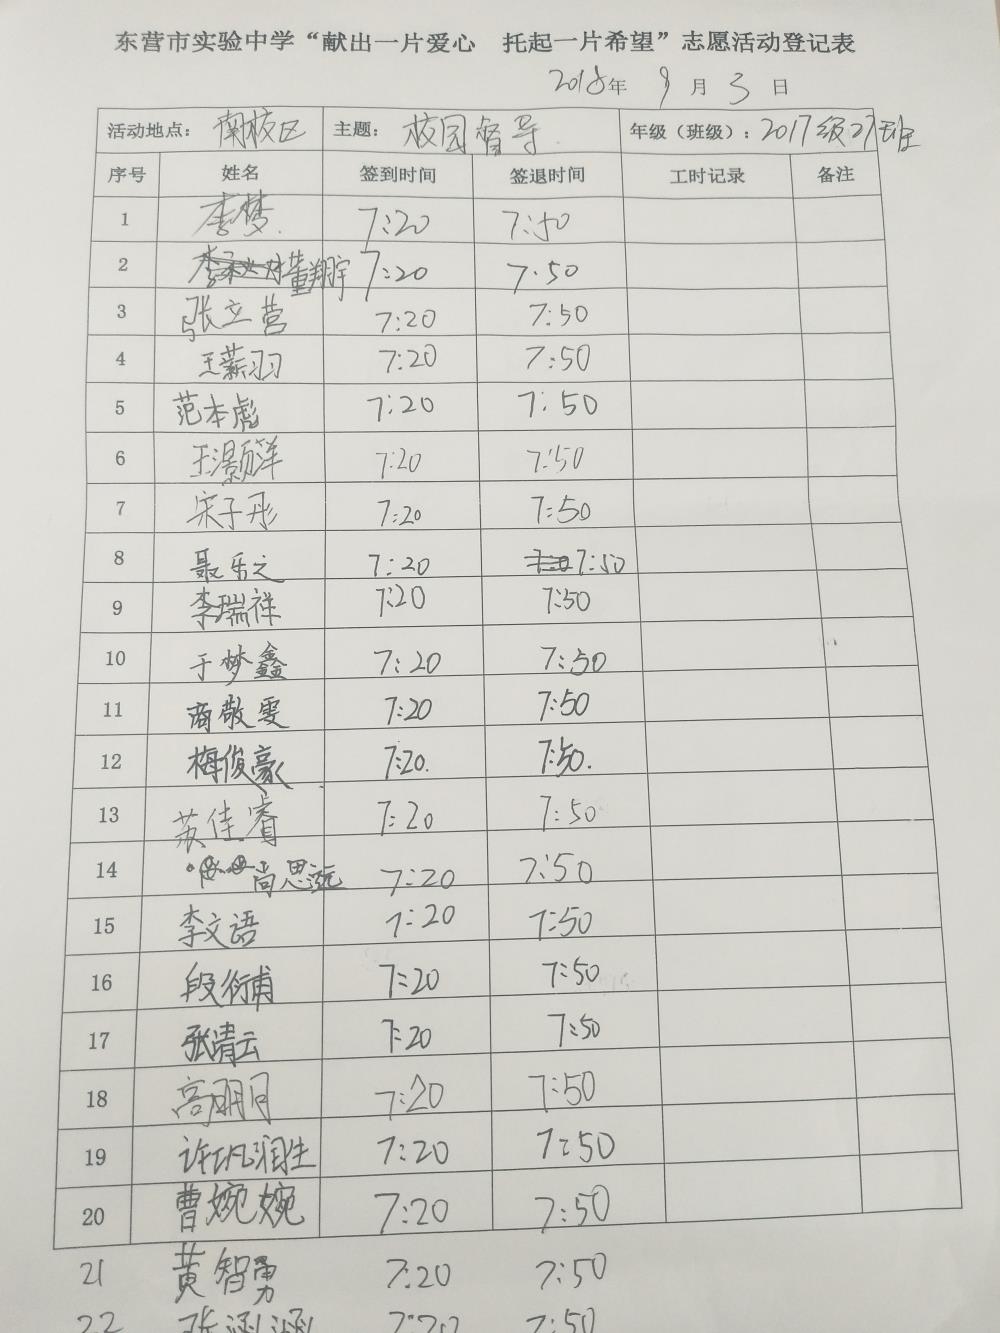 东营市实验中学“献出一片爱心 托起一片希望”志愿活动登记表
2018年 9月 3日
活动地点： 南校区 主题： 校园督导 年级（班级）：2017级27班
序号 姓名 签到时间 签退时间 工时记录 备注
1 李梦 7:20 7:50
2 董翔宇 7:20 7:50
3 张立营 7:20 7:50
4 王薪羽 7:20 7:50
5 范本彪 7:20 7:50
6 王灏洋 7:20 7:50
7 宋子彤 7:20 7:50
8 聂乐之 7:20 7:50
9 李瑞祥 7:20 7:50
10 于梦鑫 7:20 7:50
11 商敬雯 7:20 7:50
12 梅俊豪 7:20. 7:50.
13 苏佳睿 7:20 7:50
14 尚思远 7:20 7:50
15 李文语 7:20 7:50
16 段衍甫 7:20 7:50
17 张清云 7:20 7:50
18 高明月 7:20 7:50
19 许凡润生 7:20 7:50
20 曹婉婉 7:20 7:50
21 黄智勇 7:20 7:50
22 张涵涵 7:20 7:50